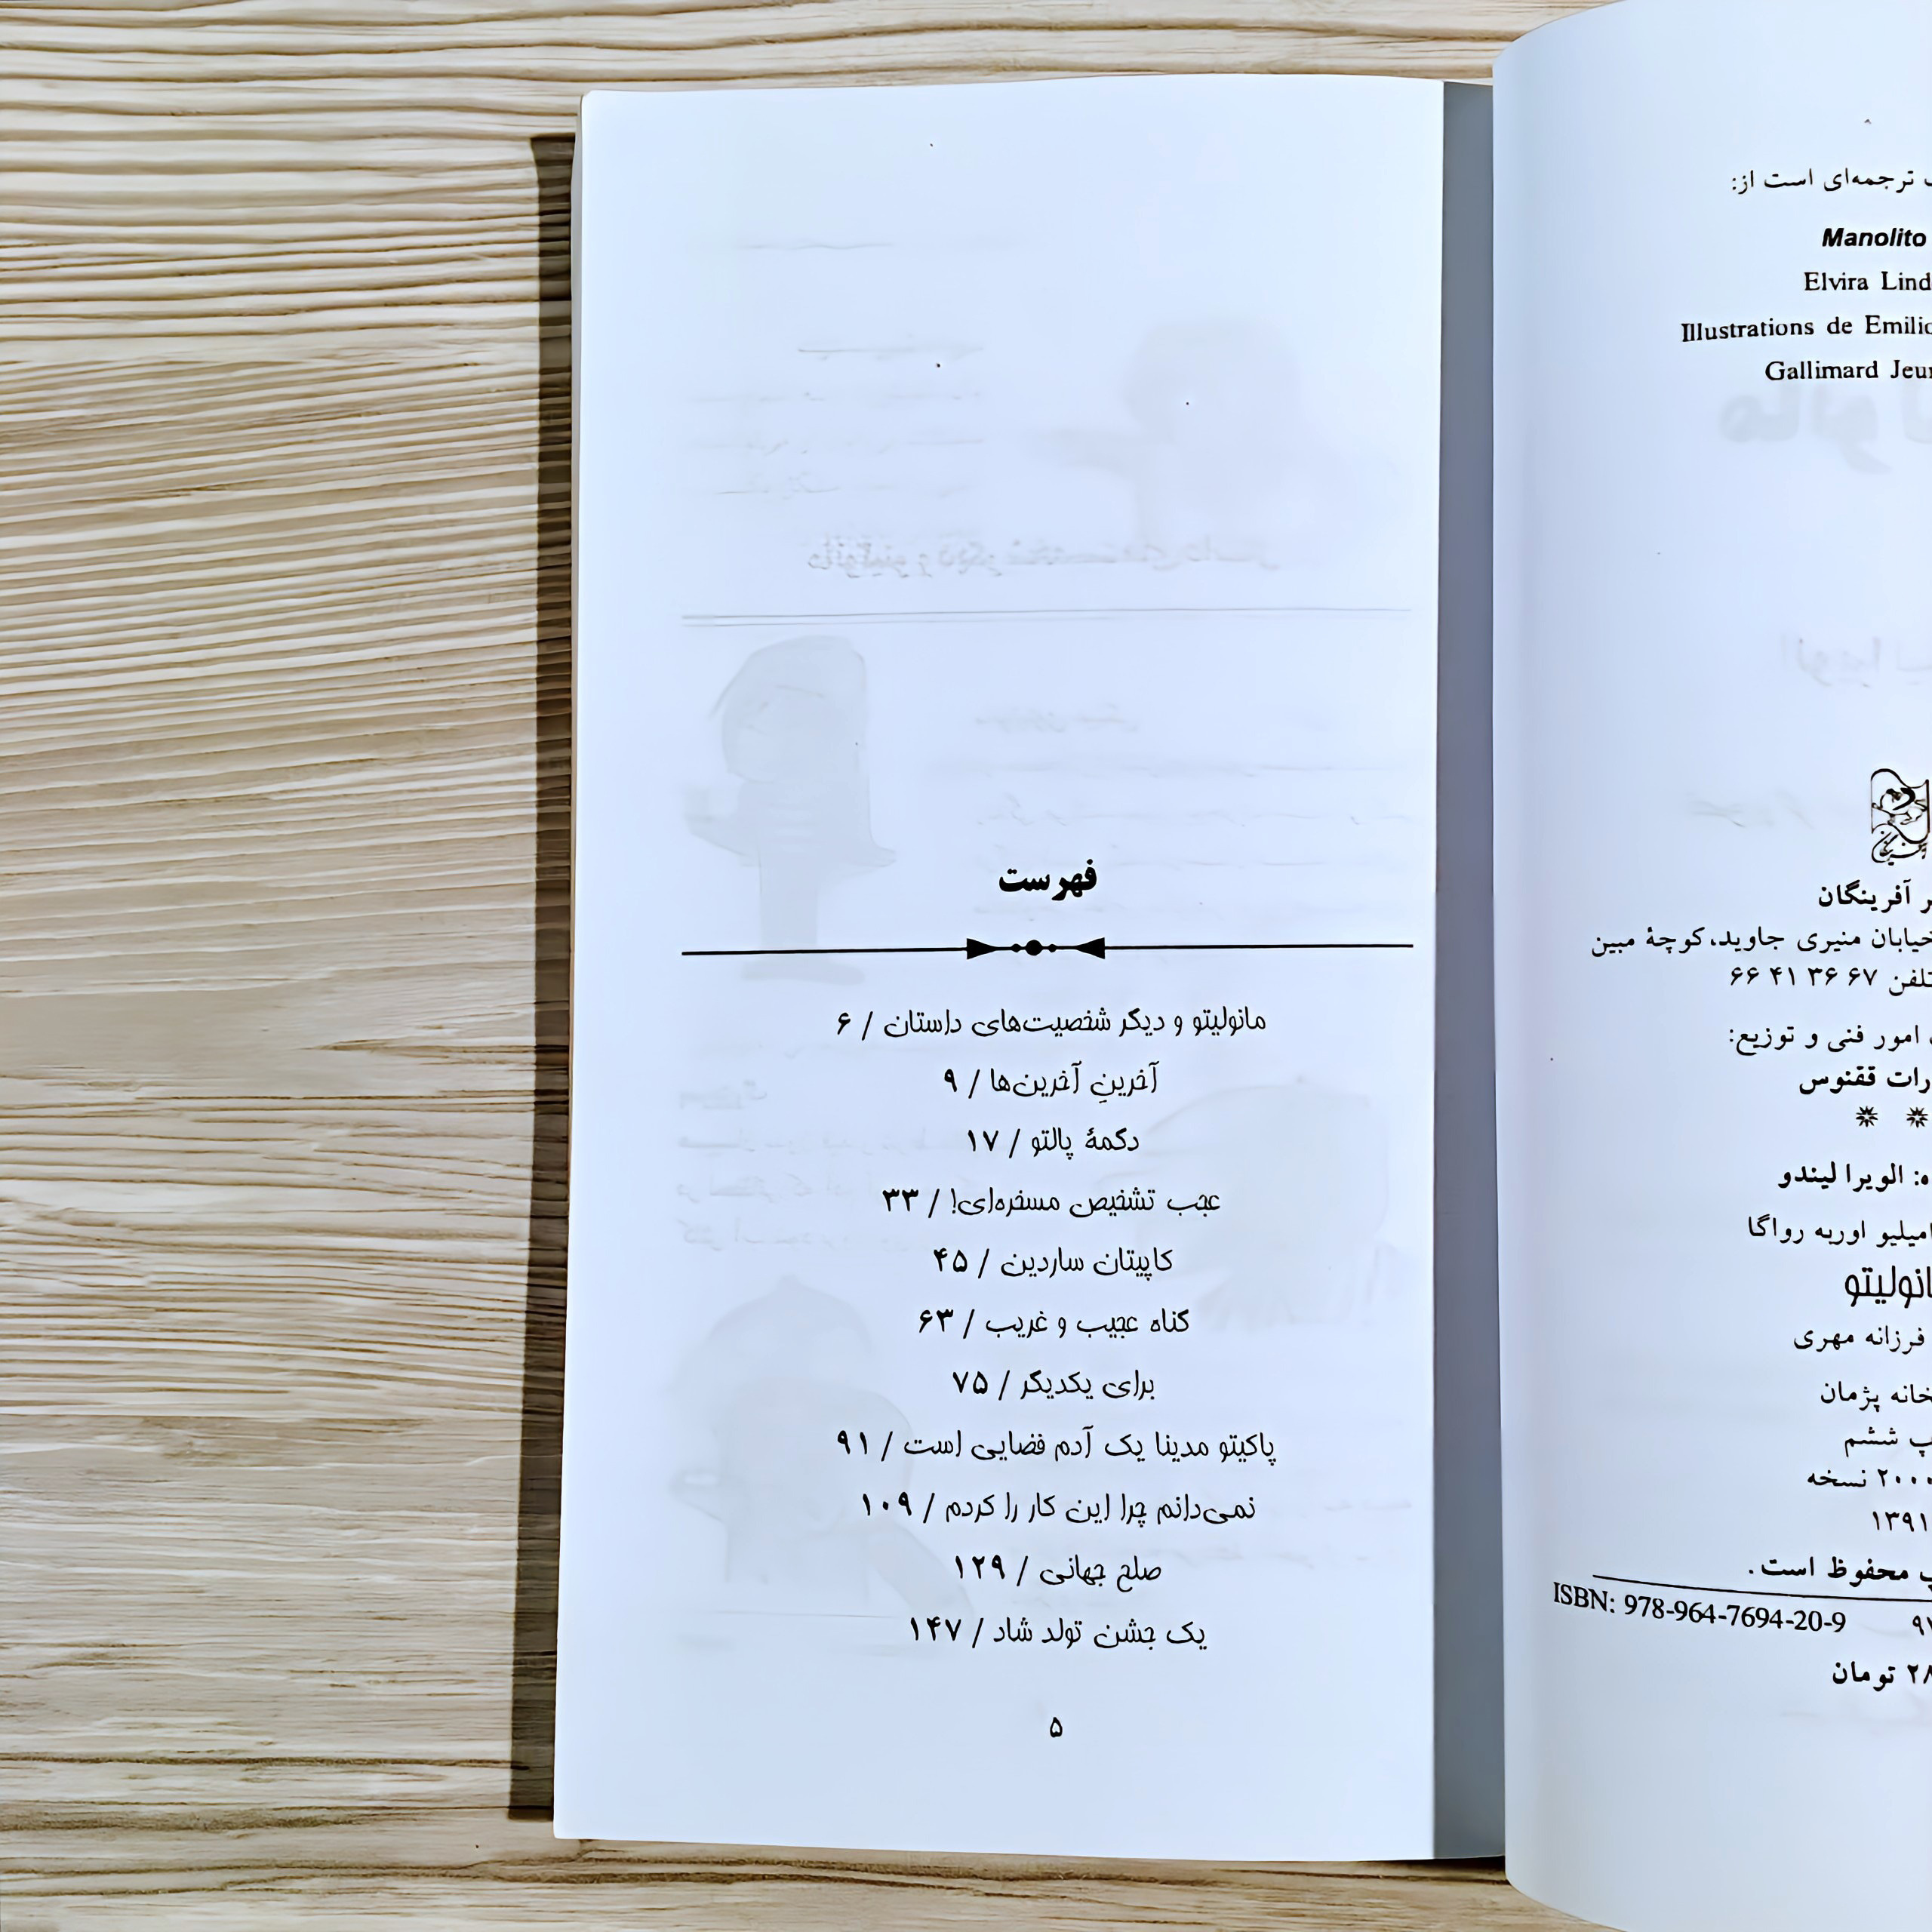 ترجمه‌ای است از:
Manolito
Elvira Lind
Illustrations de Emilio
Gallimard Jeun
آفرینگان
خیابان منیری جاوید، کوچهٔ مبین
تلفن ۶۷ ۳۶ ۴۱ ۶۶
امور فنی و توزیع:
رات ققنوس
ه: الویرا لیندو
امیلیو اوربه رواگا
انولیتو
فرزانه مهری
خانه پژمان
پ ششم
۲۰۰۰ نسخه
۱۳۹۱
محفوظ است.
ISBN: 978-964-7694-20-9
تومان
فهرست
مانولیتو و دیگر شخصیت‌های داستان / ۶
آخرینِ آخرین‌ها / ۹
دکمهٔ پالتو / ۱۷
عجب تشخیص مسخره‌ای! / ۳۳
کاپیتان ساردین / ۴۵
گناه عجیب و غریب / ۶۳
برای یکدیگر / ۷۵
پاکیتو مدینا یک آدم فضایی است / ۹۱
نمی‌دانم چرا این کار را کردم / ۱۰۹
صلح جهانی / ۱۲۹
یک جشن تولد شاد / ۱۴۷
۵